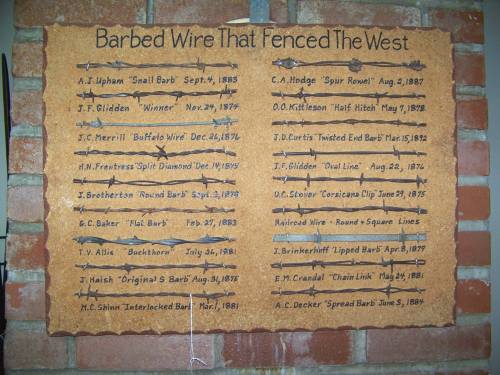 Barbed Wire That Fenced The West
A.J. Upham "Snail Barb" Sept. 4, 1883
J.F. Glidden "Winner" Nov. 24, 1874
J.C. Merrill "Buffalo Wire" Dec. 26, 1876
H.N. Frentress "Split Diamond" Dec. 14, 1875
J. Brotherton "Round Barb" Sept. 3, 1878
G.C. Baker "Flat Barb" Feb. 27, 1883
T.V. Allis "Buckthorn" July 26, 1881
J. Haish "Original S Barb" Aug. 31, 1875
M.C. Shinn "Interlocked Barb" Mar. 1, 1881
C.A. Hodge "Spur Rowel" Aug. 2, 1887
O.O. Kittleson "Half Hitch" May 7, 1878
J.D. Curtis "Twisted End Barb" Mar. 15, 1892
J.F. Glidden "Oval Line" Aug. 22, 1876
U.C. Stover "Corsicana Clip" June 29, 1875
Railroad Wire - Round & Square Lines
J. Brinkerhoff "Lipped Barb" Apr. 8, 1879
E.M. Crandal "Chain Link" May 24, 1881
A.C. Decker "Spread Barb" June 3, 1884